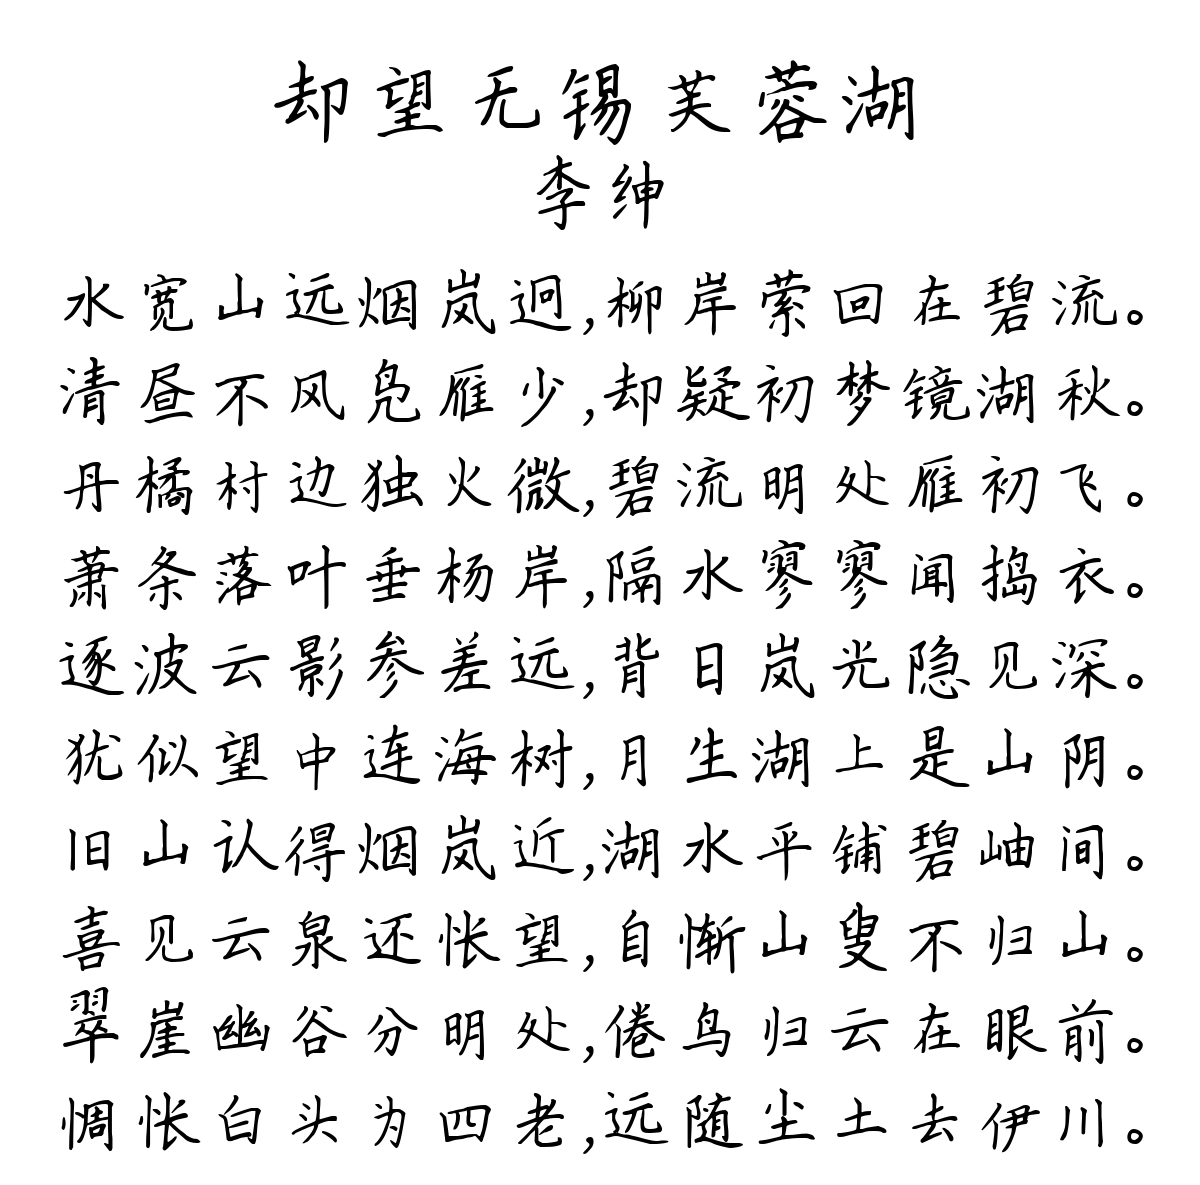 却望无锡芙蓉湖
李绅
水宽山远烟岚迥,柳岸萦回在碧流。
清昼不风凫雁少,却疑初梦镜湖秋。
丹橘村边独火微,碧流明处雁初飞。
萧条落叶垂杨岸,隔水寥寥闻捣衣。
逐波云影参差远,背日岚光隐见深。
犹似望中连海树,月生湖上是山阴。
旧山认得烟岚近,湖水平铺碧岫间。
喜见云泉还怅望,自惭山叟不归山。
翠崖幽谷分明处,倦鸟归云在眼前。
惆怅白头为四老,远随尘土去伊川。